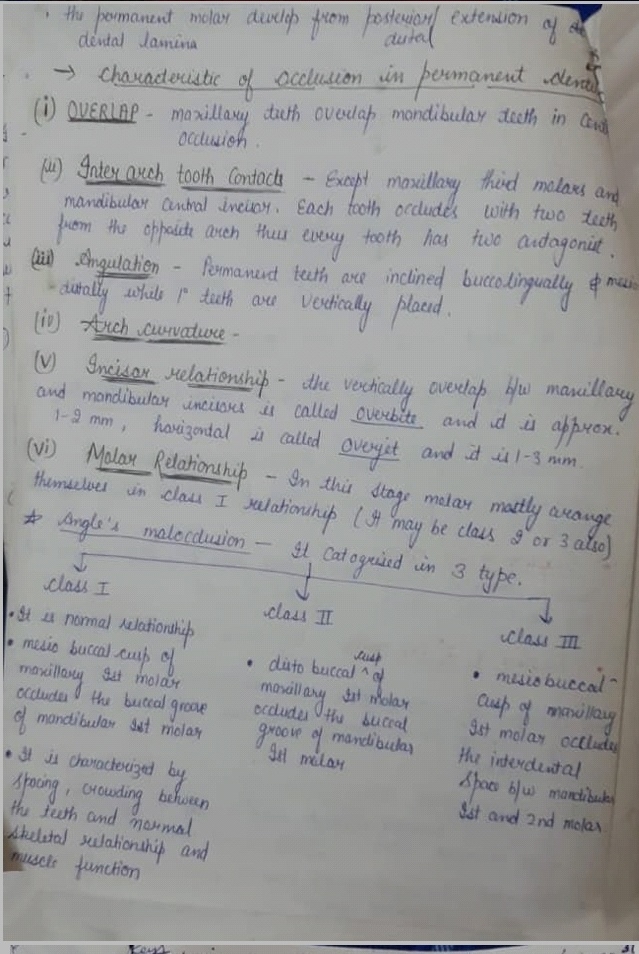 the permanent molar develop from posterior/ extension of
dental lamina distal
→ Characteristic of occlusion in permanent
(i) OVERLAP - maxillary teeth overlap mandibular teeth in
occlusion.
(ii) Inter arch tooth contacts - Except maxillary third molars and
mandibular central incisor. Each tooth occludes with two teeth
from the opposite arch thus every tooth has two antagonist.
(iii) Angulation - Permanent teeth are inclined buccolingually & mesio
distally while 1° teeth are vertically placed.
(iv) Arch curvature -
(v) Incisor relationship - the vertically overlap b/w maxillary
and mandibular incisors is called overbite and it is approx.
1-2 mm, horizontal is called overjet and it is 1-3 mm.
(vi) Molar Relationship - In this stage molar mostly arange
themselves in class I relationship (It may be class 2 or 3 also)
* Angle's malocclusion - It catogrised in 3 type.
class I
• It is normal relationship
• mesio buccal cusp of
maxillary Ist molar
occludes the buccal groove
of mandibular Ist molar
• It is characterized by
spacing, crowding between
the teeth and normal
skeletal relationship and
muscle function
class II
• disto buccal ^ cusp of
maxillary Ist molar
occludes the buccal
groove of mandibular
Ist molar
class III
• mesiobuccal
cusp of maxillary
Ist molar occludes
the interdental
space b/w mandibular
Ist and 2nd molar
Keys